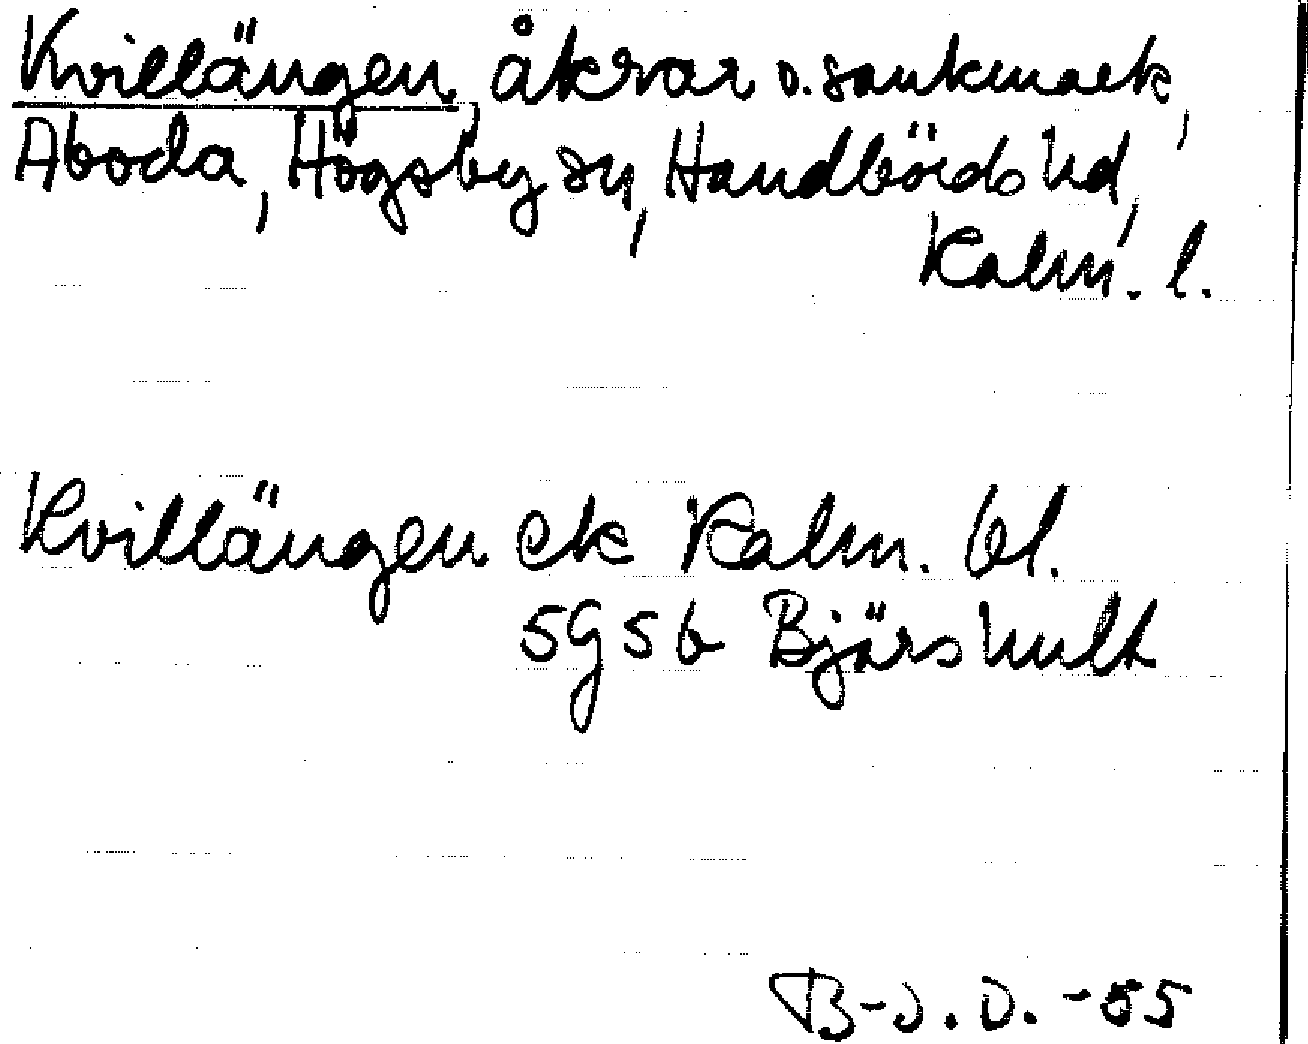 Kvillängen, åkrar o. sankmark,
Aboda, Högsby sn, Handbörds hd,
Kalm. l.
Kvillängen ek Kalm. bl.
5g5b Bjärshult
B-J.D. -55